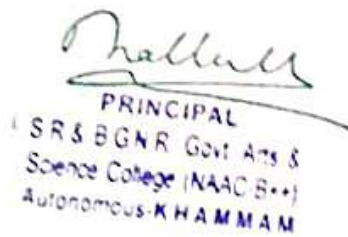 PRINCIPAL
SR & BGNR Govt Arts &
Science College (NAAC B++)
Autonomous-KHAMMAM